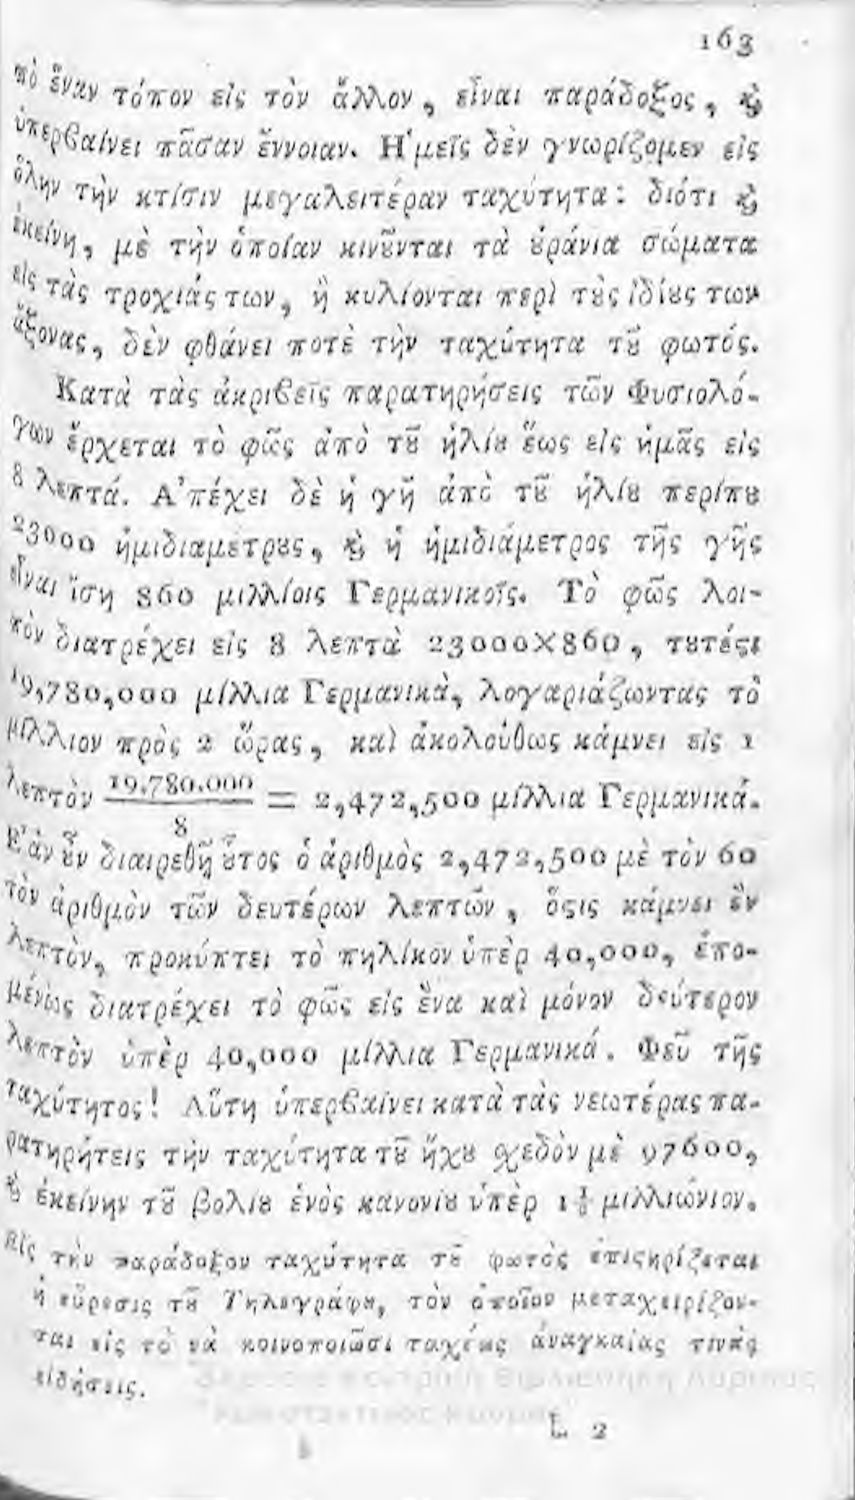 163
πὸ ἕναν τόπον εἰς τὸν ἄλλον, εἶναι παράδοξος, ϗ̀
ὑπερβαίνει πᾶσαν ἔννοιαν. Ἡμεῖς δὲν γνωρίζομεν εἰς
ὅλην τὴν κτίσιν μεγαλειτέραν ταχύτητα: διότι ϗ̀
ἐκείνη, μὲ τὴν ὁποίαν κινοῦνται τὰ οὐράνια σώματα
εἰς τὰς τροχιάς των, ἢ κυλίονται περὶ τοὺς ἰδίους των
ἄξονας, δὲν φθάνει ποτὲ τὴν ταχύτητα τοῦ φωτός.
Κατὰ τὰς ἀκριβεῖς παρατηρήσεις τῶν Φυσιολό-
γων ἔρχεται τὸ φῶς ἀπὸ τοῦ ἡλίου ἕως εἰς ἡμᾶς εἰς
8 λεπτά. Ἀπέχει δὲ ἡ γῆ ἀπὸ τοῦ ἡλίου περίπου
23000 ἡμιδιαμέτρους, ϗ̀ ἡ ἡμιδιάμετρος τῆς γῆς
εἶναι ἴση 860 μιλλίοις Γερμανικοῖς. Τὸ φῶς λοι-
πὸν διατρέχει εἰς 8 λεπτὰ 23000×860, τουτέϛι
19,780,000 μίλλια Γερμανικὰ, λογαριάζωντας τὸ
μίλλιον πρὸς 2 ὥρας, καὶ ἀκολούθως κάμνει εἰς 1
λεπτὸν 19,780,000/8 = 2,472,500 μίλλια Γερμανικά.
Ἐὰν οὖν διαιρεθῇ οὗτος ὁ ἀριθμὸς 2,472,500 μὲ τὸν 60
τὸν ἀριθμὸν τῶν δευτέρων λεπτῶν, ὅϛις κάμνει ἓν
λεπτὸν, προκύπτει τὸ πηλίκον ὑπὲρ 40,000, ἑπο-
μένως διατρέχει τὸ φῶς εἰς ἕνα καὶ μόνον δεύτερον
λεπτὸν ὑπὲρ 40,000 μίλλια Γερμανικά. Φεῦ τῆς
ταχύτητος! Αὕτη ὑπερβαίνει κατὰ τὰς νεωτέρας πα-
ρατηρήσεις τὴν ταχύτητα τοῦ ἤχου σχεδὸν μὲ 97600,
ϗ̀ ἐκείνην τοῦ βολίου ἑνὸς κανονίου ὑπὲρ 1 μιλλιώνιον.
εἰς τὴν παράδοξον ταχύτητα τοῦ φωτὸς ἐπιϛηρίζεται
ἡ εὕρεσις τοῦ Τηλεγράφου, τὸν ὁποῖον μεταχειρίζον-
ται εἰς τὸ νὰ κοινοποιῶσι ταχέως ἀναγκαίας τινὰς
εἰδήσεις.
L 2